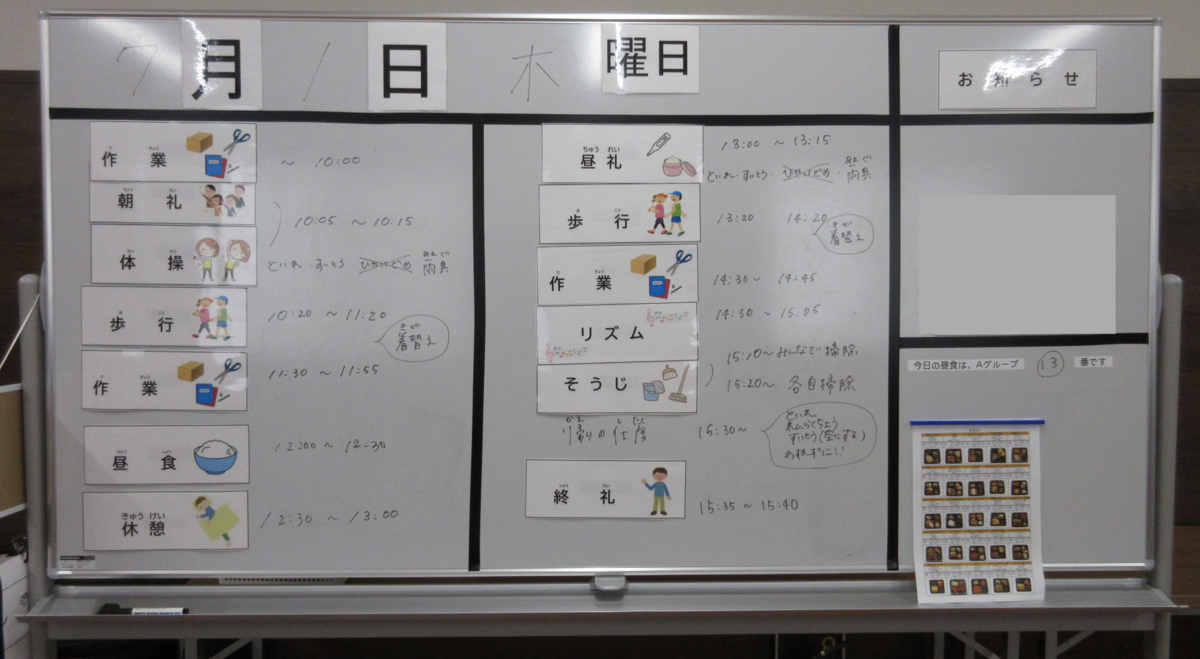 7月1日 木曜日
作業 ~ 10:00
朝礼
10:05 ~ 10:15
体操 といれ・すいとう ひやけどめ 雨具
歩行 10:20 ~ 11:20
きが
着替え
作業 11:30 ~ 11:55
昼食 12:00 ~ 12:30
きゅうけい
休憩 12:30 ~ 13:00
ちゅうれい
昼礼 13:00 ~ 13:15
といれ・すいとう・ひやけどめ・雨具
歩行 13:20 14:20
きが
着替え
作業 14:30 ~ 14:45
リズム 14:50 ~ 15:05
15:10~ みんなで掃除
そうじ 15:20~ 各自掃除
かえ
帰りの仕度 15:30~
といれ
れんらくちょう
すいとう(空にする)
終礼 15:35 ~ 15:40
お知らせ
今日の昼食は、Aグループ 13 番です